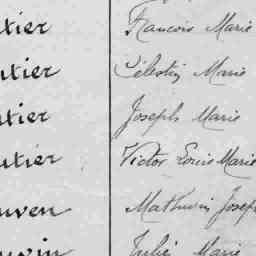 utier François Marie
utier Célestin Marie
utier Joseph Marie
utier Victor Louis Marie
uven Mathurin Joseph
uvin Julien Marie